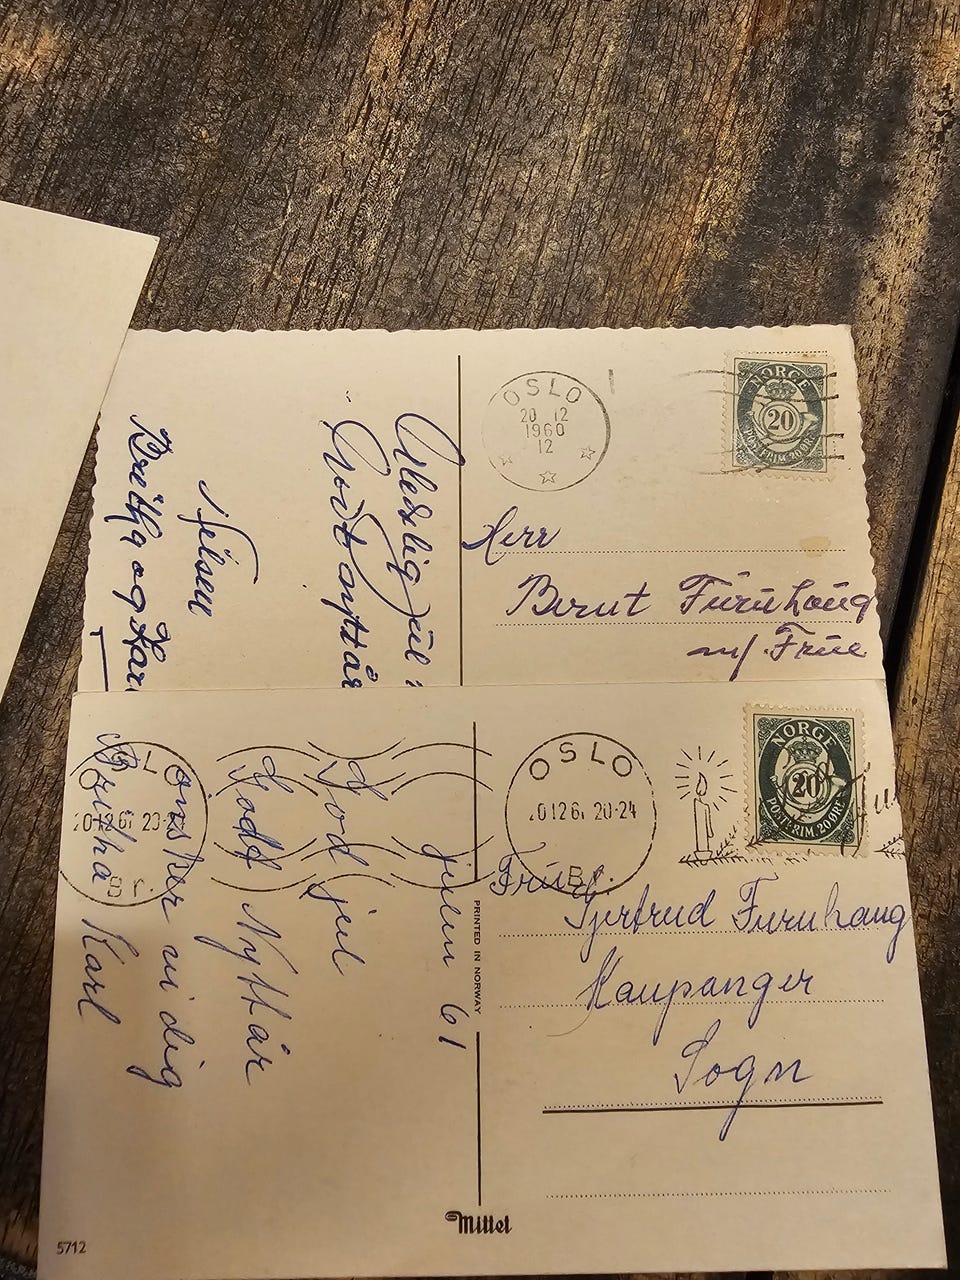 OSLO
20 12
1960
12
NORGE
20
POSTFRIM. 20 ØRE
Gledelig Jul
Godt nyttår
Hilsen
Birtha og Kar
Herr
Berut Furuhaug
m/ Frue
OSLO
20-24
Br.
OSLO
20-24
Br.
NORGE
20
POSTFRIM. 20 ØRE
julen 61
God jul
Godt Nyttår
ønsker vi dig
Karl
PRINTED IN NORWAY
Frue
Gjertrud Furuhaug
Kaupanger
Sogn
Mittet
5712